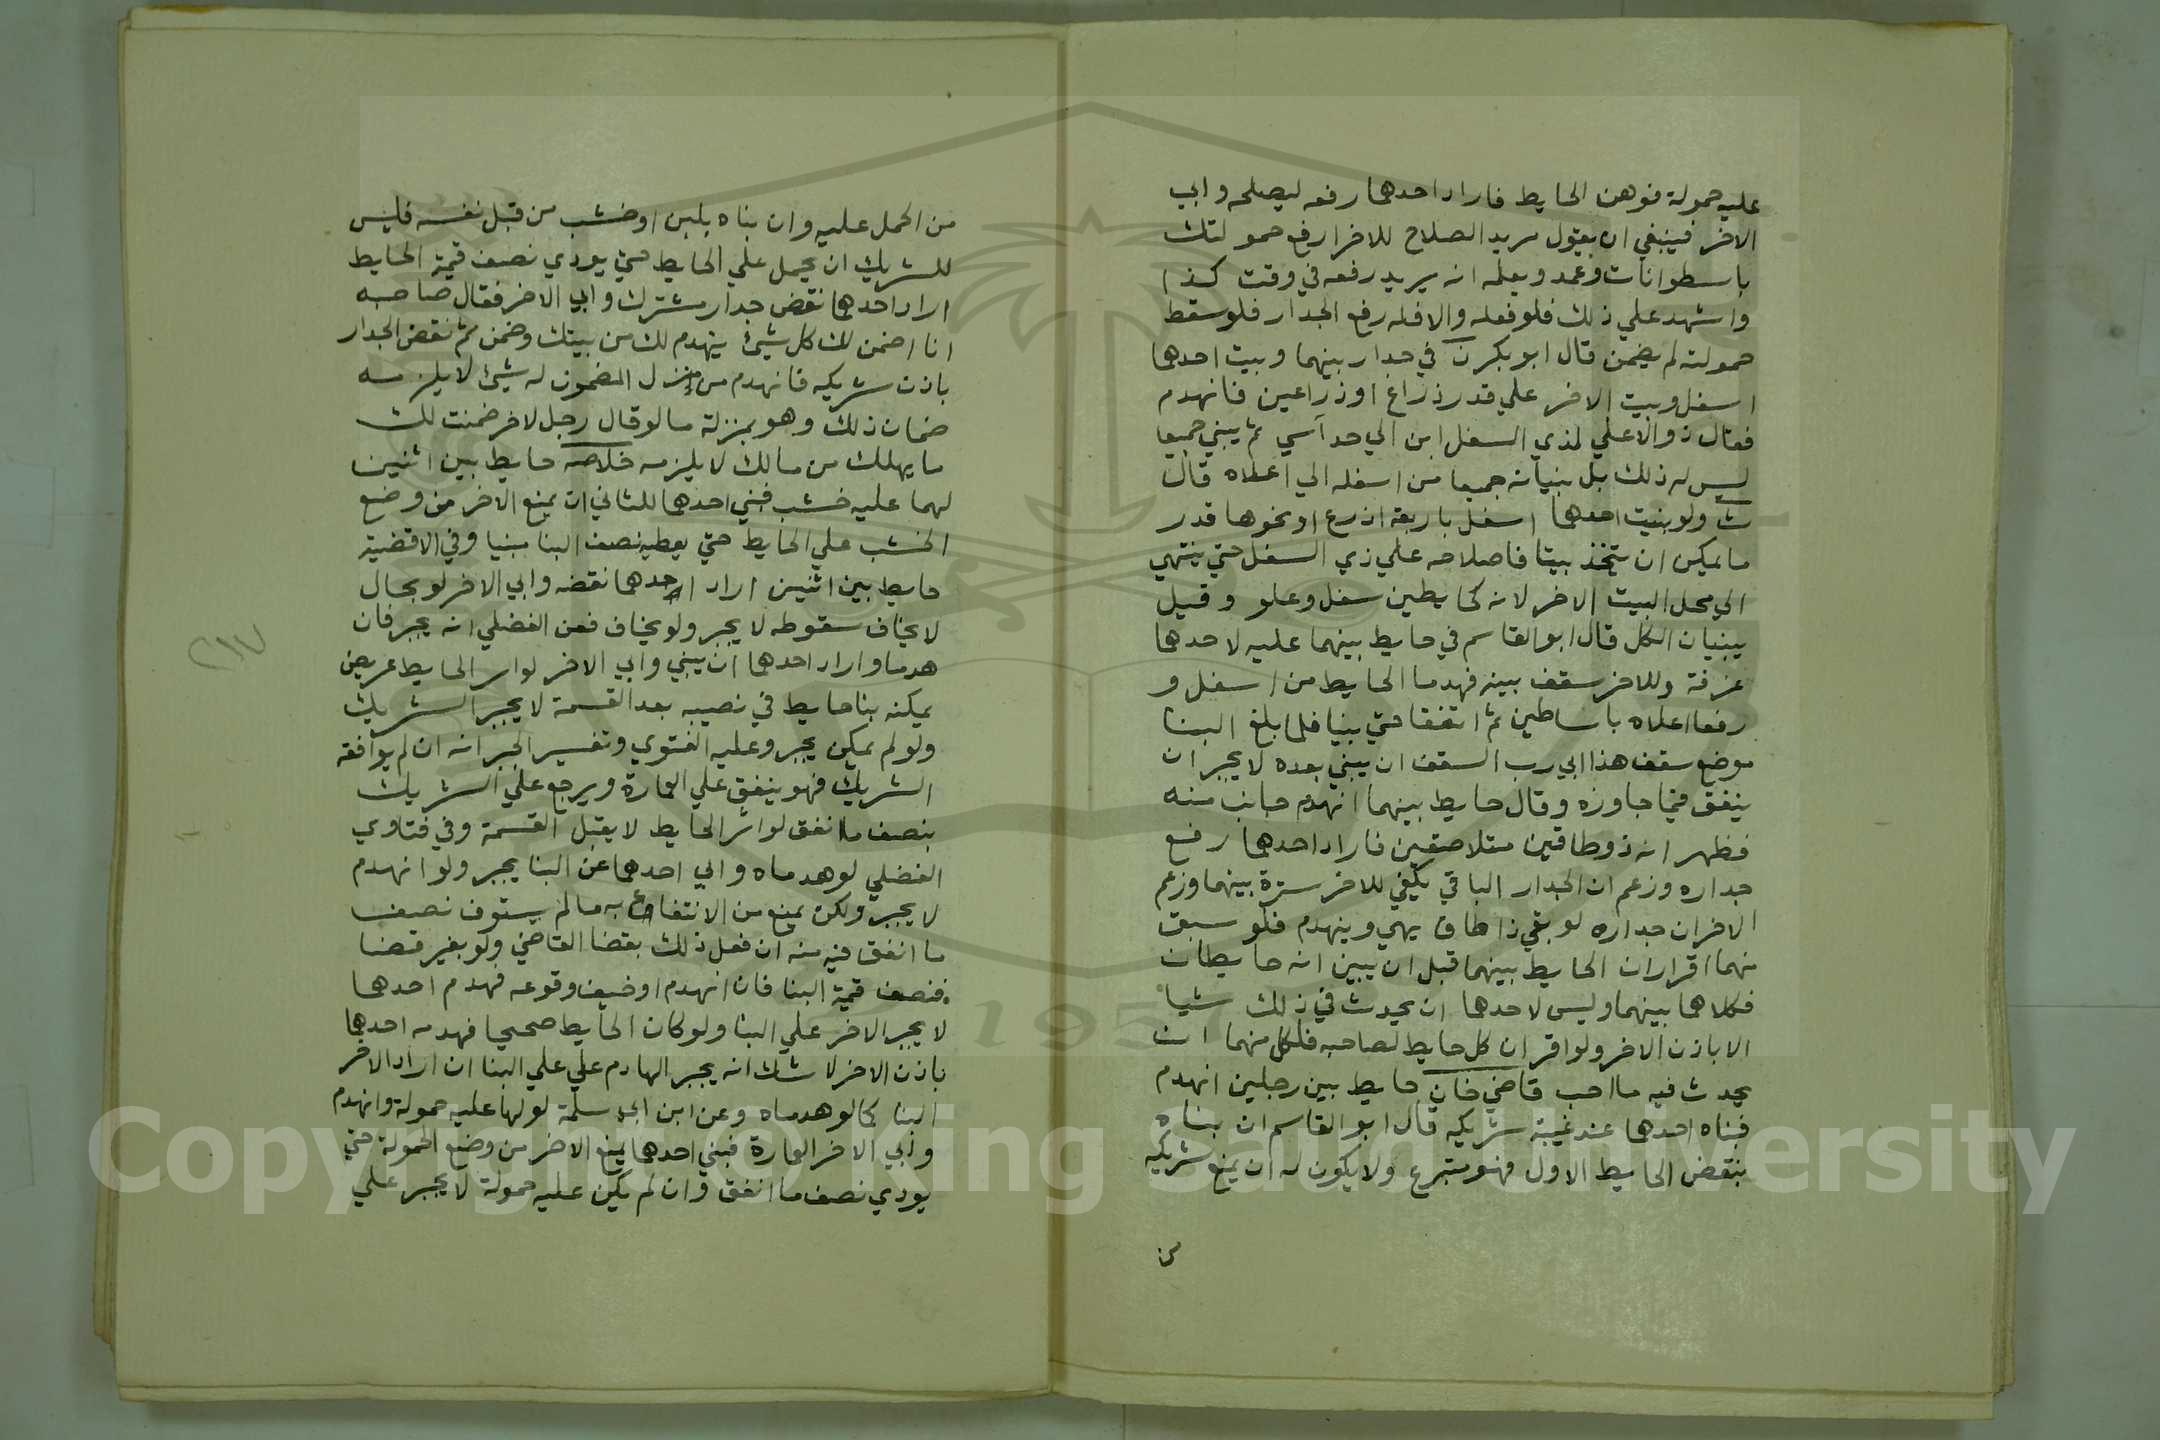 عليه حمولة فوهن الحايط فاراد احدهما رفعه ليصلحه وابي
الاخر فينبغي ان يقول مريد الصلاح للاخر ارفع حمولتك
باسطوانات وعمد ويعلمه انه يريد رفعه في وقت كذا
واشهد علي ذلك فلو فعله والا فله رفع الجدار فلو سقط
حمولته لم يضمن قال ابو بكر ن في جدار بينهما وبيت احدهما
اسفل وبيت الاخر علي قدر ذراع او ذراعين فانهدم
فقال ذو الاعلي لذي السفل ابن الي حد آسي ثم يبني جميعا
ليس له ذلك بل يبنيانه جميعا من اسفله الي اعلاه قال
ث ولو بنيت احدهما اسفل باربعة اذرع او نحوها قدر
ما يمكن ان يتخذ بيتا فاصلاحه علي ذي السفل حتي ينتهي
الي محل البيت الاخر لانه كحايطين سفل وعلو وقيل
يبنيان الكل قال ابو القاسم في حايط بينهما عليه لاحدهما
غرفة وللاخر سقف بينه فهدما الحايط من اسفل و
رفعا اعلاه باساطين ثم اتفقا حتي بنيا فلما بلغ البنا
موضع سقف هذا ابي رب السقف ان يبني بعده لا يجبر ان
ينفق فيما جاوزه وقال حايط بينهما انهدم جانب منه
فظهر انه ذو طاقين متلاصقين فاراد احدهما رفع
جداره وزعم ان الجدار الباقي يكفي للاخر سترة بينهما وزعم
الاخر ان جداره لو بقي ذا طاق يهي وينهدم فلو سبق
منهما اقرار ان الحايط بينهما قبل ان يبين انه حايطان
فكلاهما بينهما وليس لاحدهما ان يحدث في ذلك شيا
الا باذن الاخر ولو اقر ان كل حايط لصاحبه فلكل منهما ان
يحدث فيه ما احب قاضي خان حايط بين رجلين انهدم
فبناه احدهما عند غيبة شريكه قال ابو القاسم ان بناه
بنقض الحايط الاول فهو متبرع ولا يكون له ان يمنع شريكه
من
من الحمل عليه وان بناه بلبن او خشب من قبل نفسه فليس
للشريك ان يحمل علي الحايط حتي يودي نصف قيمة الحايط
اراد احدهما نقض جدار مشترك وابي الاخر فقال صاحبه
انا اضمن لك كل شيئ ينهدم لك من بيتك وضمن ثم نقض الجدار
باذن شريكه فانهدم من منزل المضمون له شيئ لا يلزمه
ضمان ذلك وهو بمنزلة ما لو قال رجل لاخر ضمنت لك
ما يهلك من مالك لا يلزمه خلاصه حايط بين اثنين
لهما عليه خشب فبني احدهما للثاني ان يمنع الاخر من وضع
الخشب علي الحايط حتي يعطيه نصف البنا مبنيا وفي الاقضية
حايط بين اثنين اراد احدهما نقضه وابي الاخر لو بحال
لا يخاف سقوطه لا يجبر ولو يخاف فعن الفضلي انه يجبر فان
هدما واراد احدهما ان يبني وابي الاخر لو اس الحايط عريض
يمكنه بنا حايط في نصيبه بعد القسمة لا يجبر الشريك
ولو لم يمكن يجبر وعليه الفتوي وتفسير الجبر انه ان لم يوافقه
الشريك فهو ينفق علي العمارة ويرجع علي الشريك
بنصف ما انفق لو اس الحايط لا يقبل القسمة وفي فتاوي
الفضلي لو هدماه وابي احدهما عن البنا يجبر ولو انهدم
لا يجبر ولكن يمنع من الانتفاع به ما لم يستوف نصف
ما انفق فيه منه ان فعل ذلك بقضا القاضي ولو بغير قضا
فنصف قيمة البنا فان انهدم او خيف وقوعه فهدم احدهما
لا يجبر الاخر علي البنا ولو كان الحايط صحيحا فهدمه احدهما
باذن الاخر لا شك انه يجبر الهادم علي علي البنا ان اراد الاخر
البنا كما لو هدماه وعن ابن ابي سلمة لو لهما عليه حمولة وانهدم
وابي الاخر العمارة فبني احدهما يمنع الاخر من وضع الحمولة حتي
يودي نصف ما انفق وان لم يكن عليه حمولة لا يجبر علي
٢١٧
1957
Copyright © King Saud University